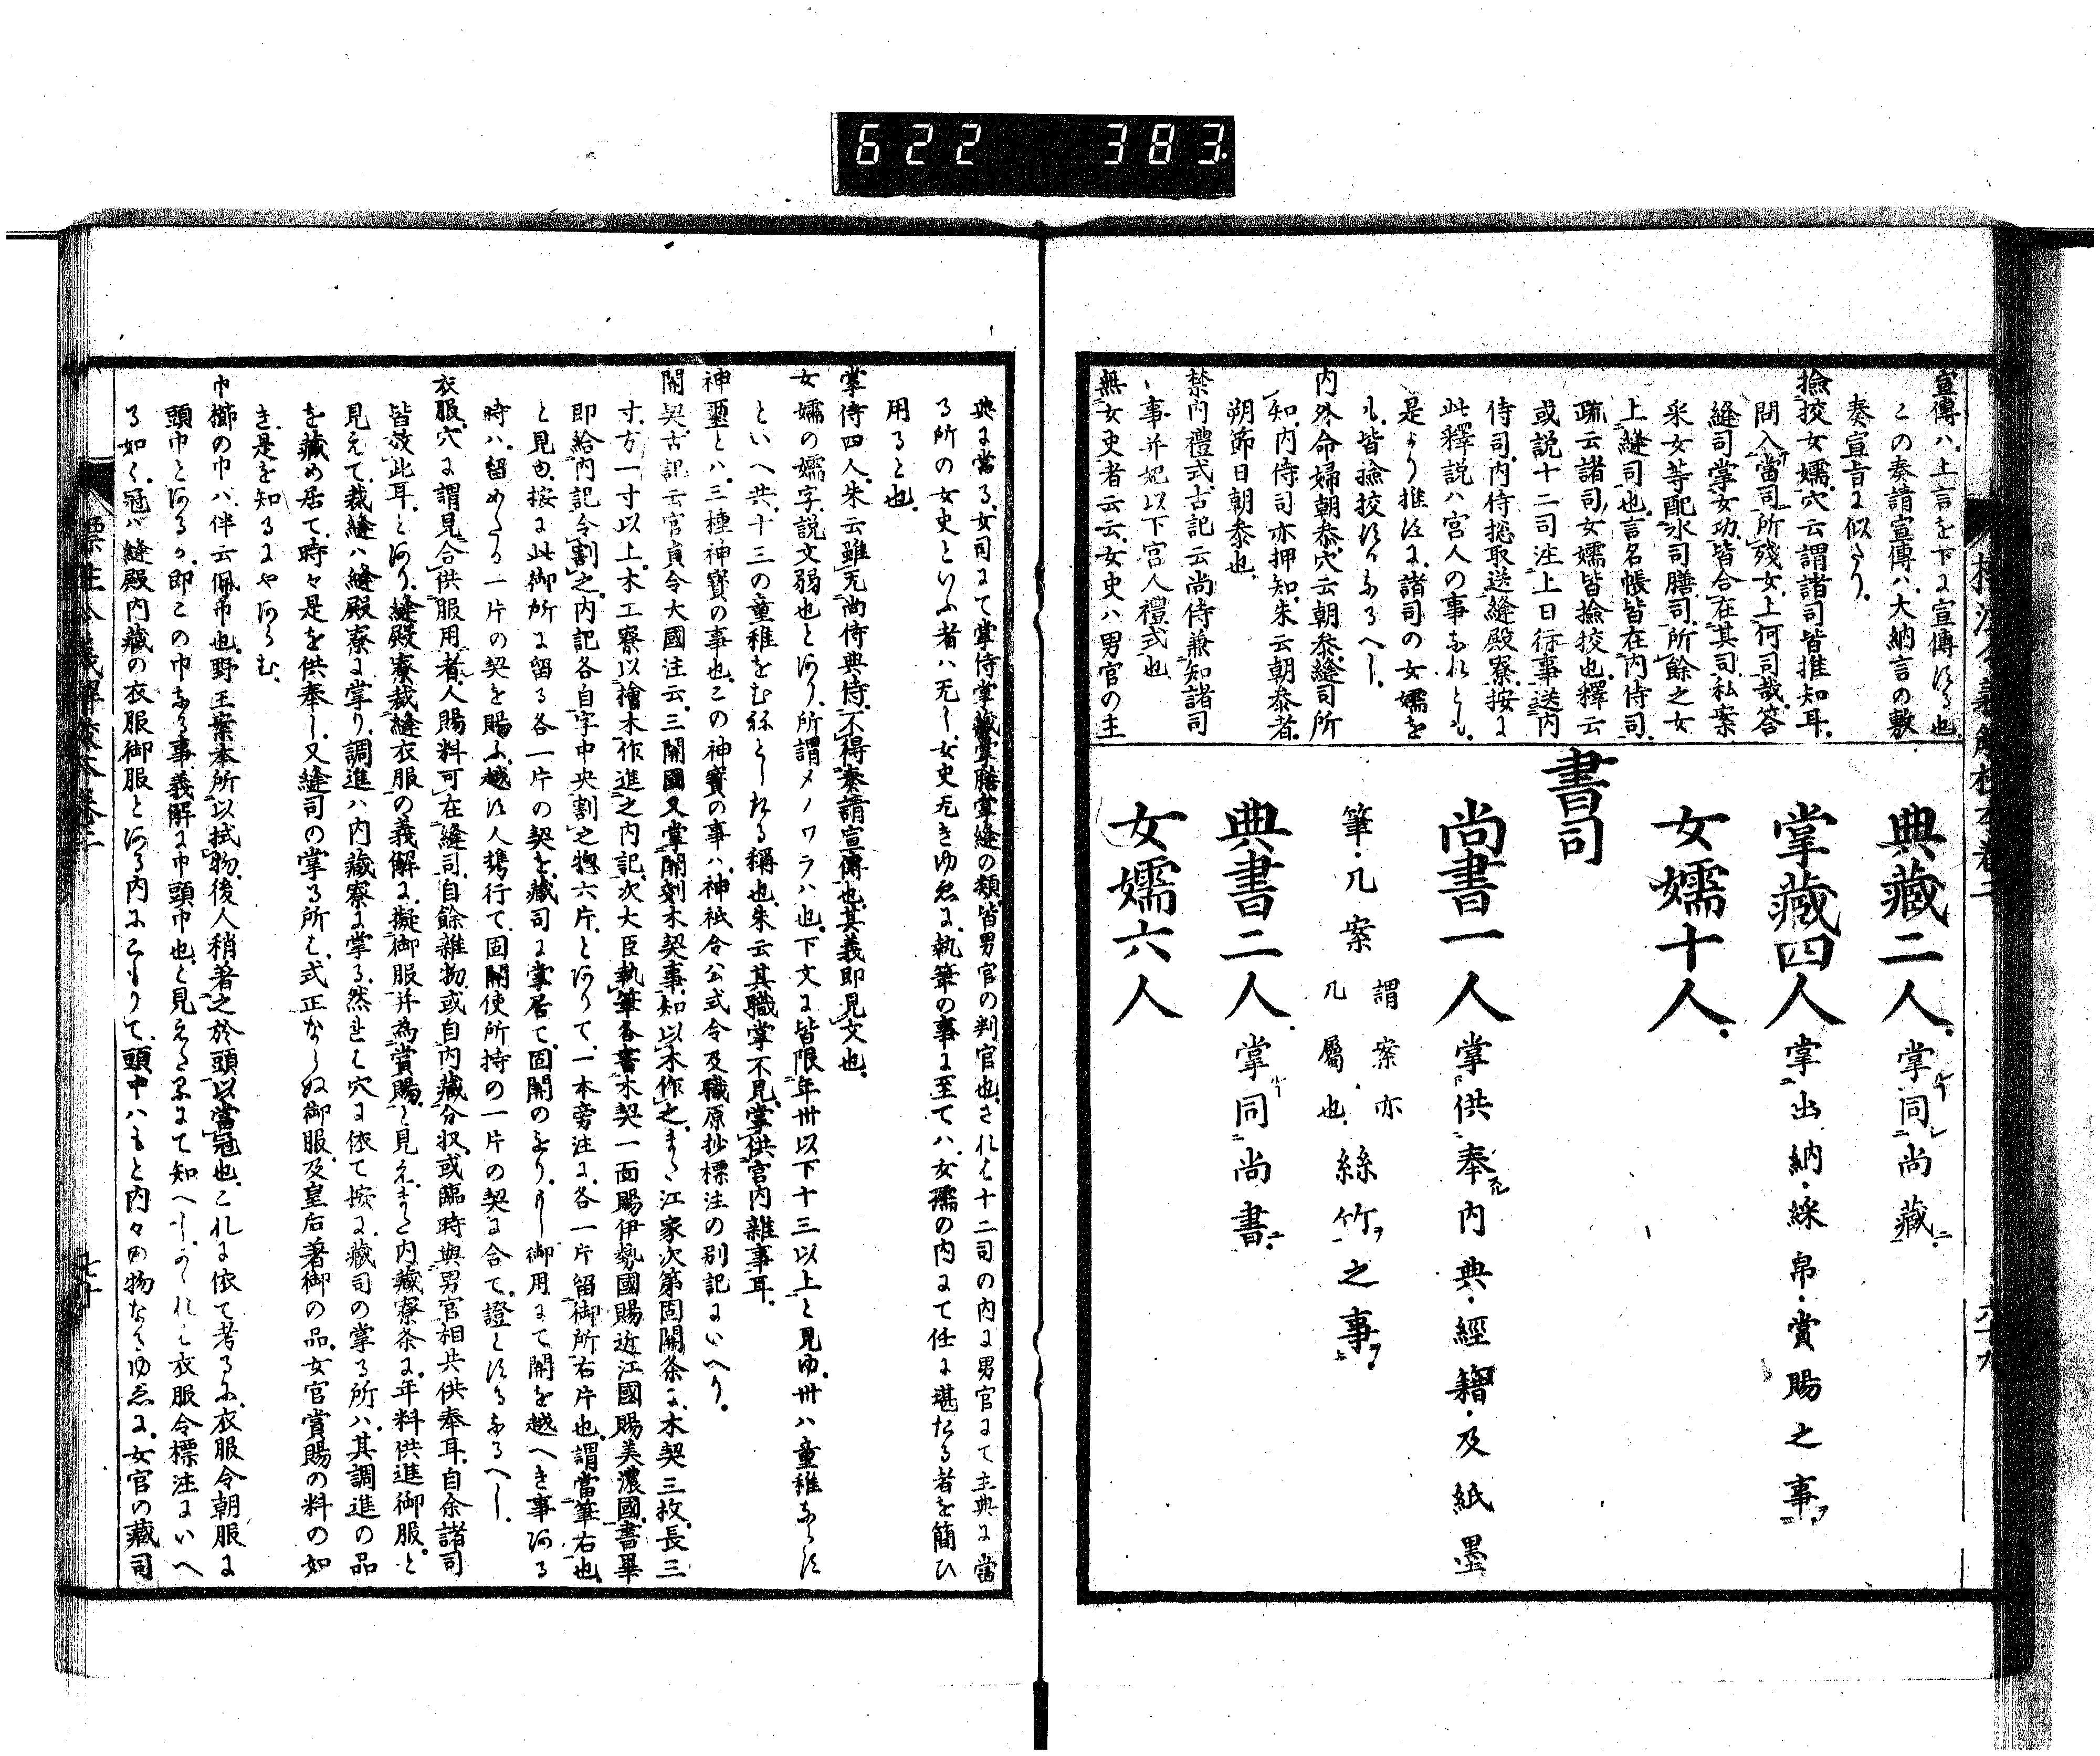 622 383
宣傳ハ、上言を下に宣傳する也
この奏請宣傳ハ、大納言の敷
奏宣旨に似たり。
撿挍女孺、穴云謂諸司皆推知耳。
問、入當司所殘女、上何司哉、答
縫司掌女功、皆合在其司、私案
采女等配水司膳司、所餘之女
上縫司也、言名帳皆在内侍司、
疏云諸司女孺皆撿挍也、釋云
或説十二司注上日行事送内
侍司、内侍惣取送縫殿寮、按に
此釋説ハ宮人の事なれとも、
是より推すに、諸司の女孺を
も、皆撿挍するなるへし。
内外命婦朝參、穴云朝參、縫司所
知、内侍司亦押知、朱云朝參者、
朔節日朝參也、
禁内禮式、古記云尚侍兼知諸司
事、并妃以下宮人禮式也、
無女史者云云、女史ハ男官の主
典藏二人。掌同尚藏
掌藏四人掌出納・綵帛・賞賜之事
女孺十人。
書司
尚書一人掌供奉内典・經籍・及紙墨
筆・几案謂案亦几屬也、絲竹之事
典書二人。掌同尚書
女孺六人
典に當る、女司にて掌侍掌藏掌膳掌縫の類、皆男官の判官也、されは十二司の内に男官にて主典に當
る所の女史といふ者ハ无し、女史无きゆゑに、執筆の事に至てハ、女孺の内にて任に堪たる者を簡ひ
用ると也。
掌侍四人、朱云雖无尚侍典侍、不得奏請宣傳也、其義即見文也、
女孺の孺字、説文弱也とあり、所謂メノワラハ也、下文に皆限年卅以下十三以上と見ゆ、卅ハ童稚ならす
といへ共、十三の童稚をむねとしたる稱也、朱云其職掌不見、掌供宮内雜事耳。
神璽とハ、三種神寶の事也、この神寶の事ハ、神祇令公式令及職原抄標注の別記にいへり。
關契、古記云官員令大國注云、三關國又掌關剗木契事、知以木作之、また江家次第固關条に、木契三枚、長三
寸、方一寸以上、木工寮以檜木作進之、内記、次大臣執筆各書木契一面賜伊勢國賜近江國賜美濃國、書畢
即給内記令割之、内記各自字中央割之惣六片、とありて、一本旁注に、各一片留御所右片也、謂當筆右也、
と見ゆ、按に此御所に留る各一片の契を、藏司に掌居て、固關のをりもし御用にて關を越へき事ある
時ハ、留めたる一片の契を賜ふ、越す人携行て、固關使所持の一片の契に合て、證とするなるへし、
衣服、穴に謂見合供服用者、人賜料可在縫司、自餘雜物、或自内藏分収、或臨時與男官相共供奉耳、自余諸司
皆效此耳、とあり、縫殿寮裁縫衣服の義解に、擬御服并為賞賜と見え、また内藏寮条に、年料供進御服、と
見えて、裁縫ハ縫殿寮に掌り、調進ハ内藏寮に掌る、然れは穴に依て按に、藏司の掌る所ハ、其調進の品
を藏め居て、時々是を供奉し、又縫司の掌る所は、式正ならぬ御服、及皇后著御の品、女官賞賜の料の如
き、是を知るにやあらむ、
巾櫛の巾ハ、伴云佩巾也、野王案本所以拭物、後人稍著之於頭以當冠也、これに依て考るに、衣服令朝服に
頭巾とあるハ、即この巾なる事、義解に巾頭巾也、と見えたるにて知へし、かれこれ衣服令標注にいへ
る如く、冠ハ縫殿内藏の衣服御服とある内にこもりて、頭巾ハもと内々の物なるゆゑに、女官の藏司